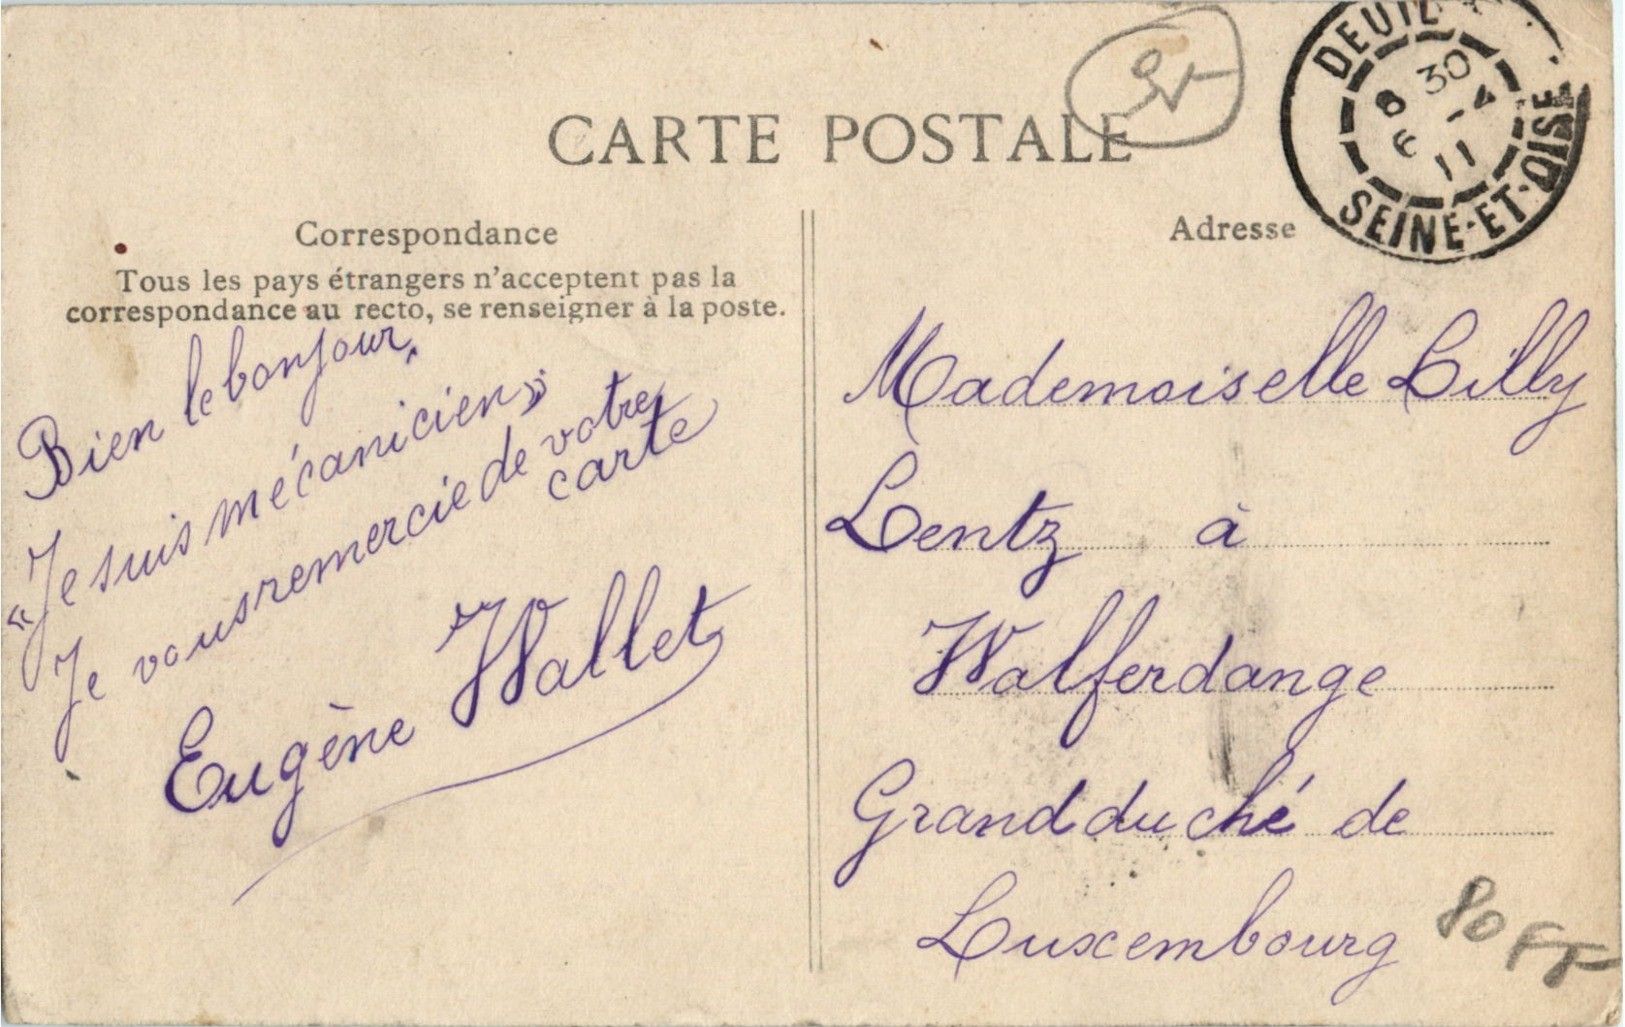 CARTE POSTALE
Correspondance
Tous les pays étrangers n'acceptent pas la
correspondance au recto, se renseigner à la poste.
Bien le bonjour.
« Je suis mécanicien »
Je vous remercie de votre
carte
Eugène Wallet
Adresse
DEUIL
8 30
6 -4
11
SEINE-ET-OISE
Mademoiselle Lilly
Lentz à
Walferdange
Grand duché de
Luxembourg
80 FF